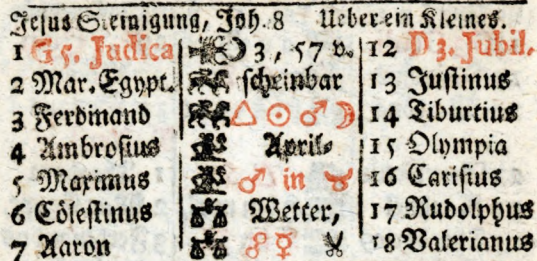 Jesus Steinigung, Joh. 8 Ueber ein Kleines.
1 G 5. Judica ☽ 3, 57 v. 12 D 3. Jubil.
2 Mar. Egypt. scheinbar 13 Justinus
3 Ferdinand △ ☉ ♂ ☽ 14 Tiburtius
4 Ambrosius April- 15 Olympia
5 Maximus ♂ in ♉ 16 Carisius
6 Cölestinus Wetter, 17 Rudolphus
7 Aaron ☍ ☿ 18 Valerianus